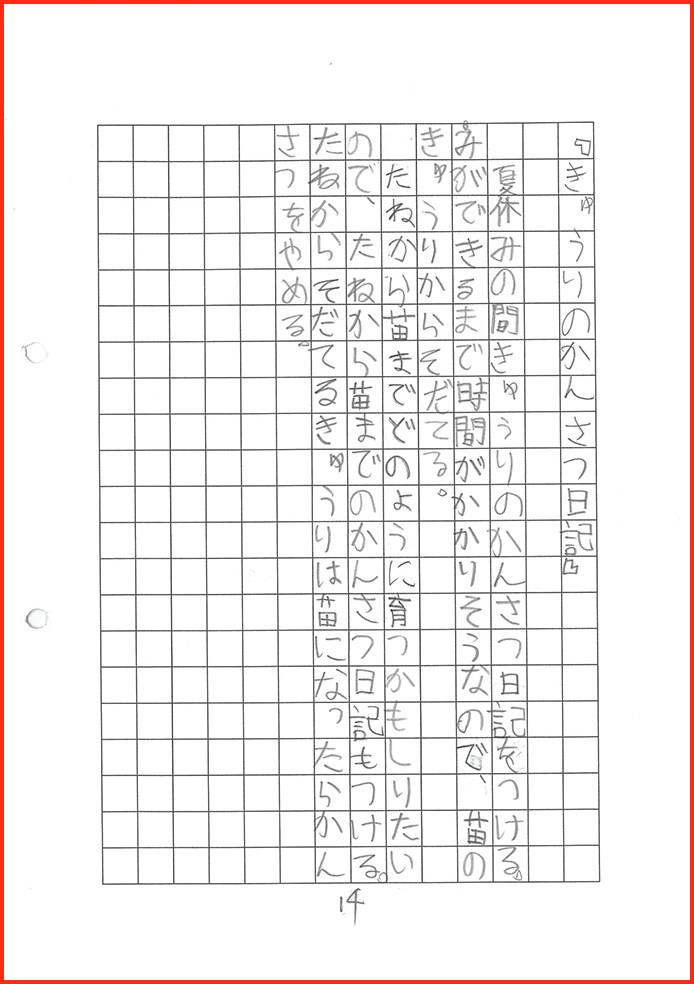 『きゅうりのかんさつ日記』
夏休みの間きゅうりのかんさつ日記をつける。
みができるまで時間がかかりそうなので、苗の
きゅうりからそだてる。
たねから苗までどのように育つかもしりたい
ので、たねから苗までのかんさつ日記もつける。
たねからそだてるきゅうりは苗になったらかん
さつをやめる。
14